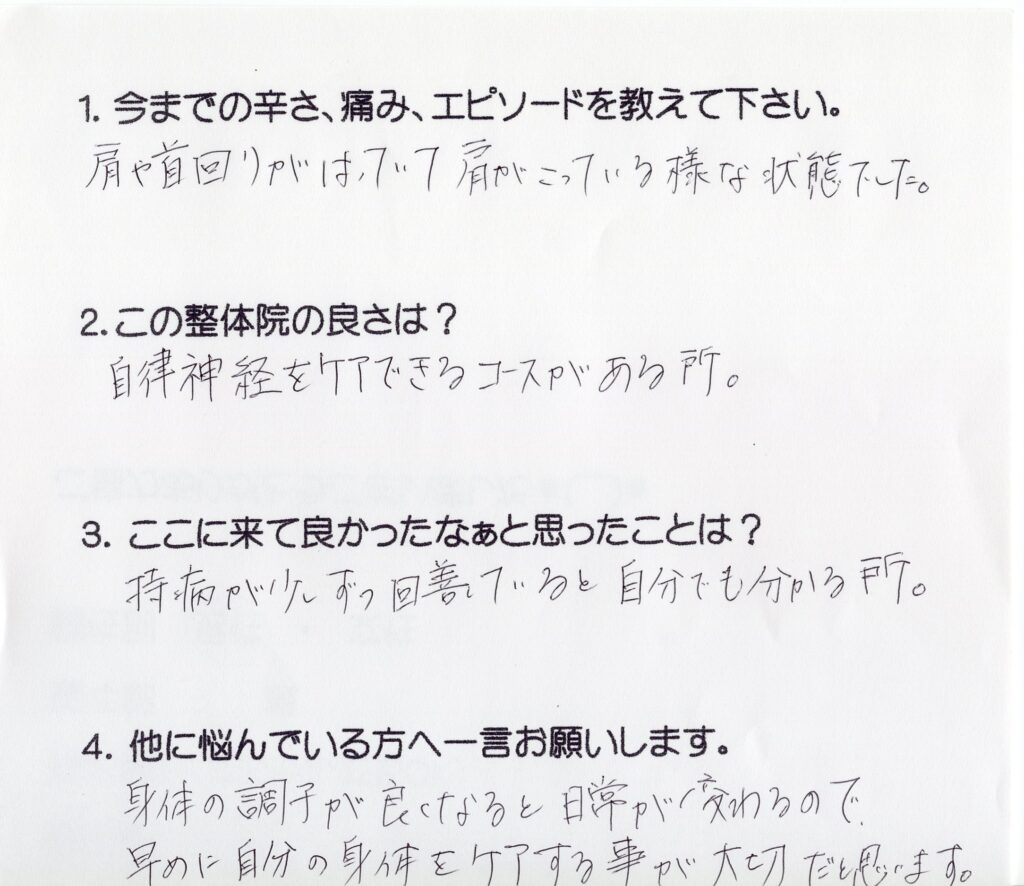 1. 今までの辛さ、痛み、エピソードを教えて下さい。
肩や首回りがはっていて肩がこっている様な状態でした。
2. この整体院の良さは？
自律神経をケアできるコースがある所。
3. ここに来て良かったなぁと思ったことは？
持病が少しずつ回善していると自分でも分かる所。
4. 他に悩んでいる方へ一言お願いします。
身体の調子が良くなると日常が変わるので、
早めに自分の身体をケアする事が大切だと思います。